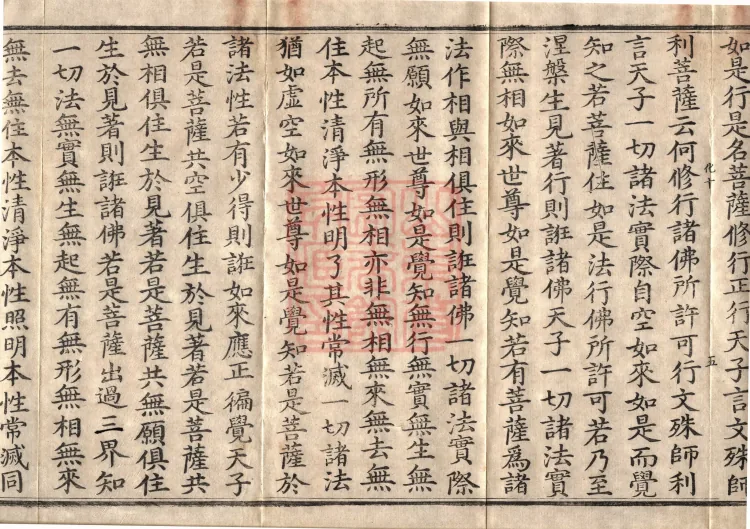 如是行是名菩薩修行正行天子言文殊師
利菩薩云何修行諸佛所許可行文殊師利
言天子一切諸法實際自空如來如是而覺
知之若菩薩住如是法行佛所許可若乃至
涅槃生見著行則誑諸佛天子一切諸法實
際無相如來世尊如是覺知若有菩薩為諸
法作相與相俱住則誑諸佛一切諸法實際
無願如來世尊如是覺知無行無實無生無
起無所有無形無相亦非無相無來無去無
住本性清淨本性明了其性常滅一切諸法
猶如虛空如來世尊如是覺知若是菩薩於
諸法性若有少得則誑如來應正徧覺天子
若是菩薩共空俱住生於見著若是菩薩共
無相俱住生於見著若是菩薩共無願俱住
生於見著則誑諸佛若是菩薩出過三界知
一切法無實無生無起無有無形無相無來
無去無住本性清淨本性照明本性常滅同
化十
五